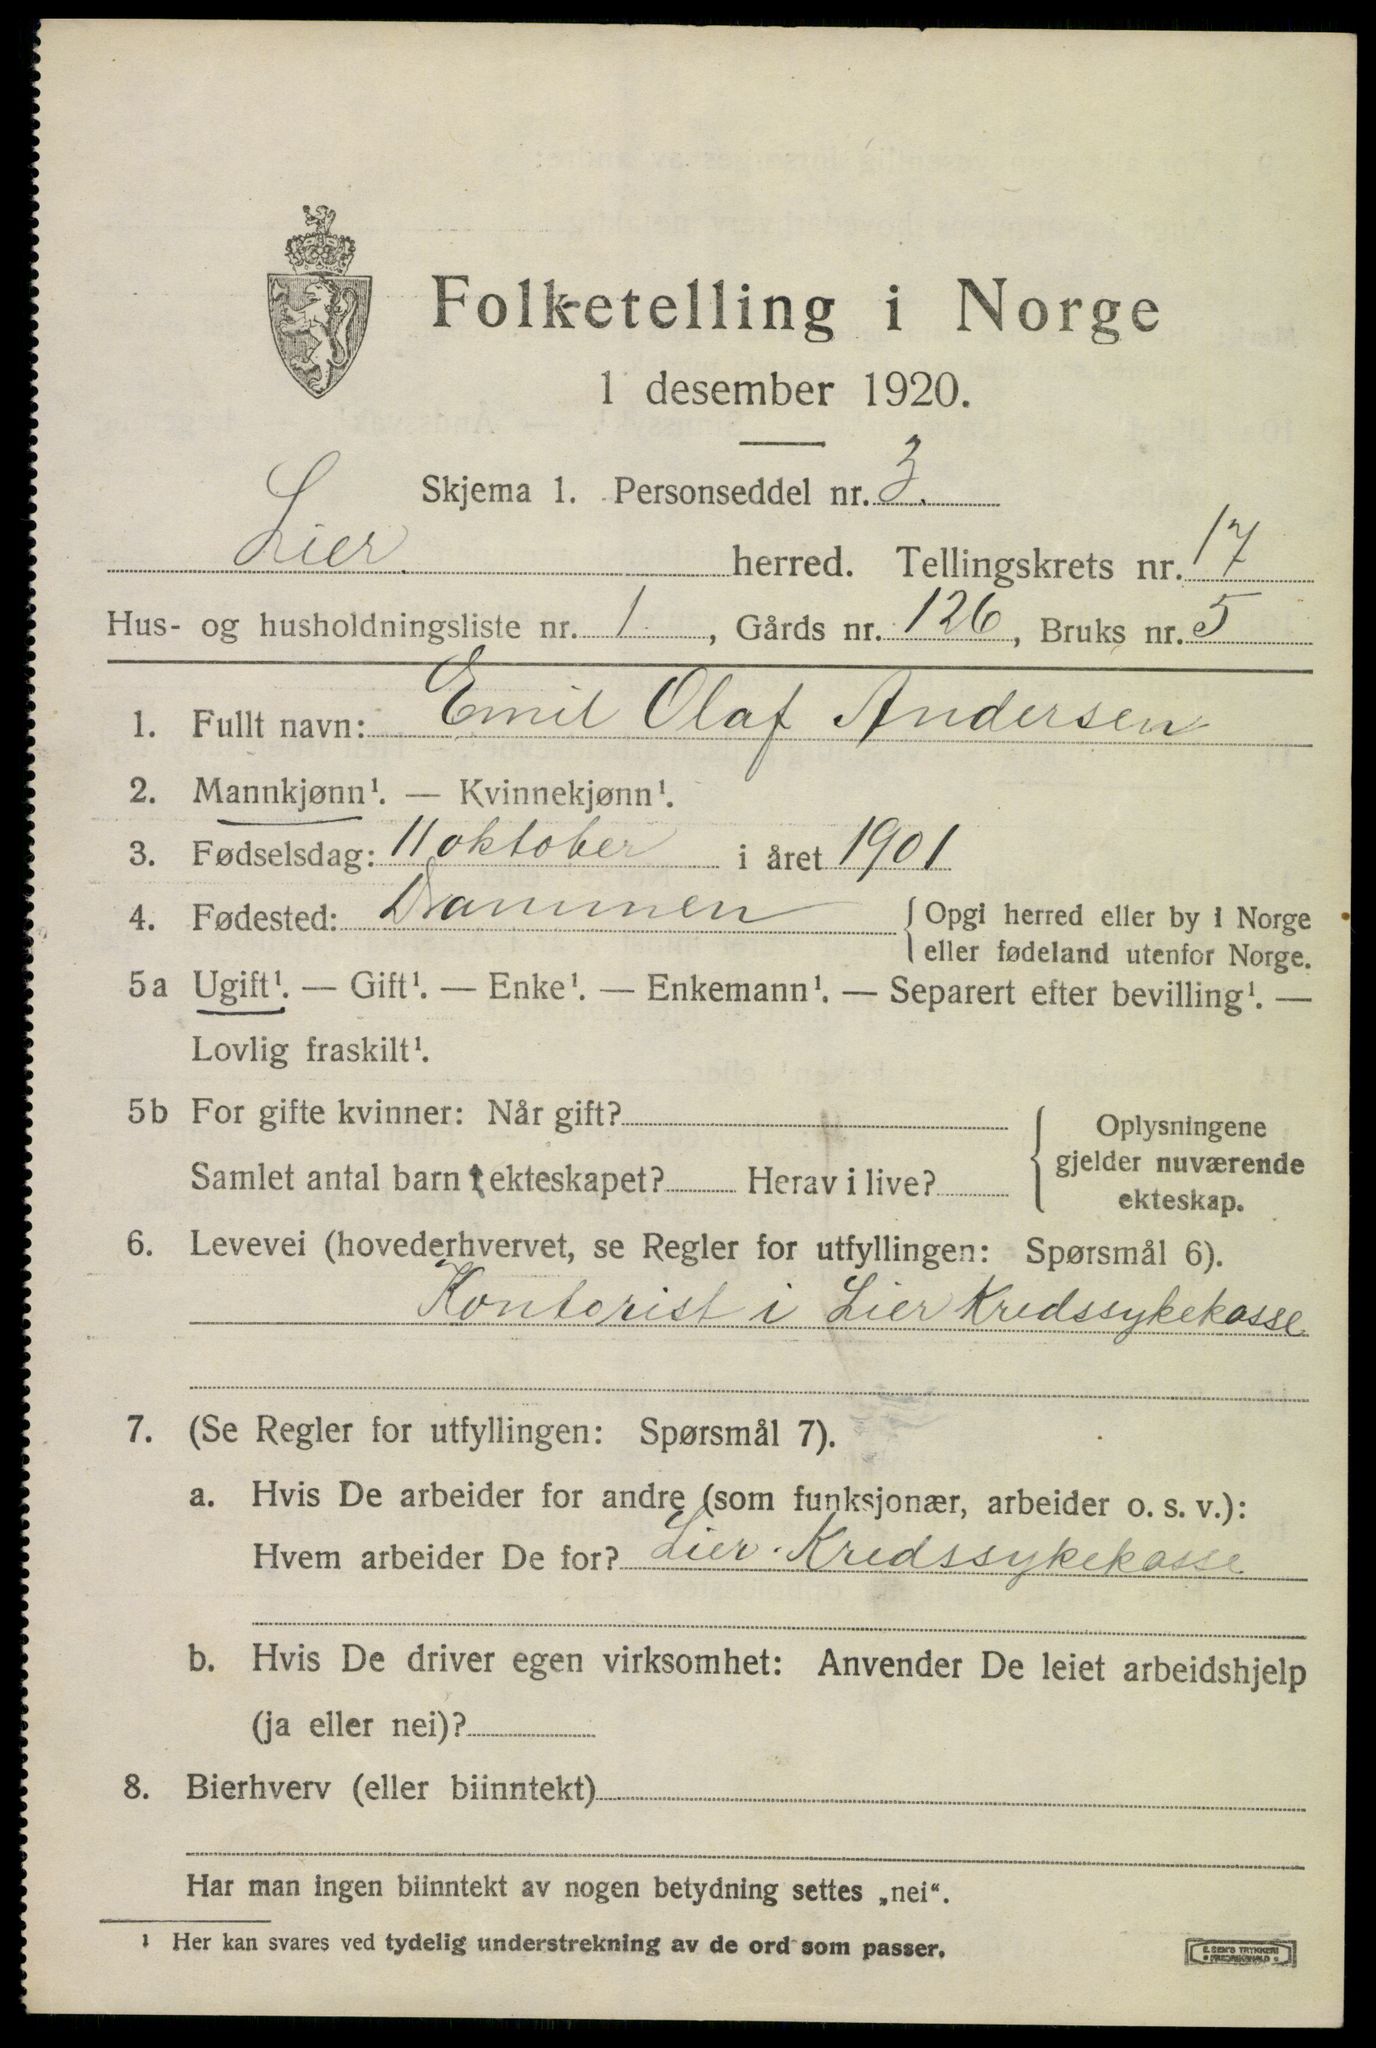 Folketelling i Norge
1 desember 1920.
Skjema 1. Personseddel nr. 3.
Lier herred. Tellingskrets nr. 17
Hus- og husholdningsliste nr. 1, Gårds nr. 126, Bruks nr. 5
1. Fullt navn: Emil Olaf Andersen
2. Mannkjønn¹. — Kvinnekjønn¹.
3. Fødselsdag: 11 oktober i året 1901
4. Fødested: Drammen { Opgi herred eller by i Norge
eller fødeland utenfor Norge.
5a Ugift¹. — Gift¹. — Enke¹. — Enkemann¹. — Separert efter bevilling¹. —
Lovlig fraskilt¹.
5b For gifte kvinner: Når gift?
Samlet antal barn i ekteskapet? Herav i live?
{ Oplysningene
gjelder nuværende
ekteskap.
6. Levevei (hovederhvervet, se Regler for utfyllingen: Spørsmål 6).
Kontorist i Lier Kredssykekasse
7. (Se Regler for utfyllingen: Spørsmål 7).
a. Hvis De arbeider for andre (som funksjonær, arbeider o. s. v.):
Hvem arbeider De for? Lier Kredssykekasse
b. Hvis De driver egen virksomhet: Anvender De leiet arbeidshjelp
(ja eller nei)?
8. Bierhverv (eller biinntekt)
Har man ingen biinntekt av nogen betydning settes „nei“.
¹ Her kan svares ved tydelig understrekning av de ord som passer.
E. SEM'S TRYKKERI
FREDRIKSHALD